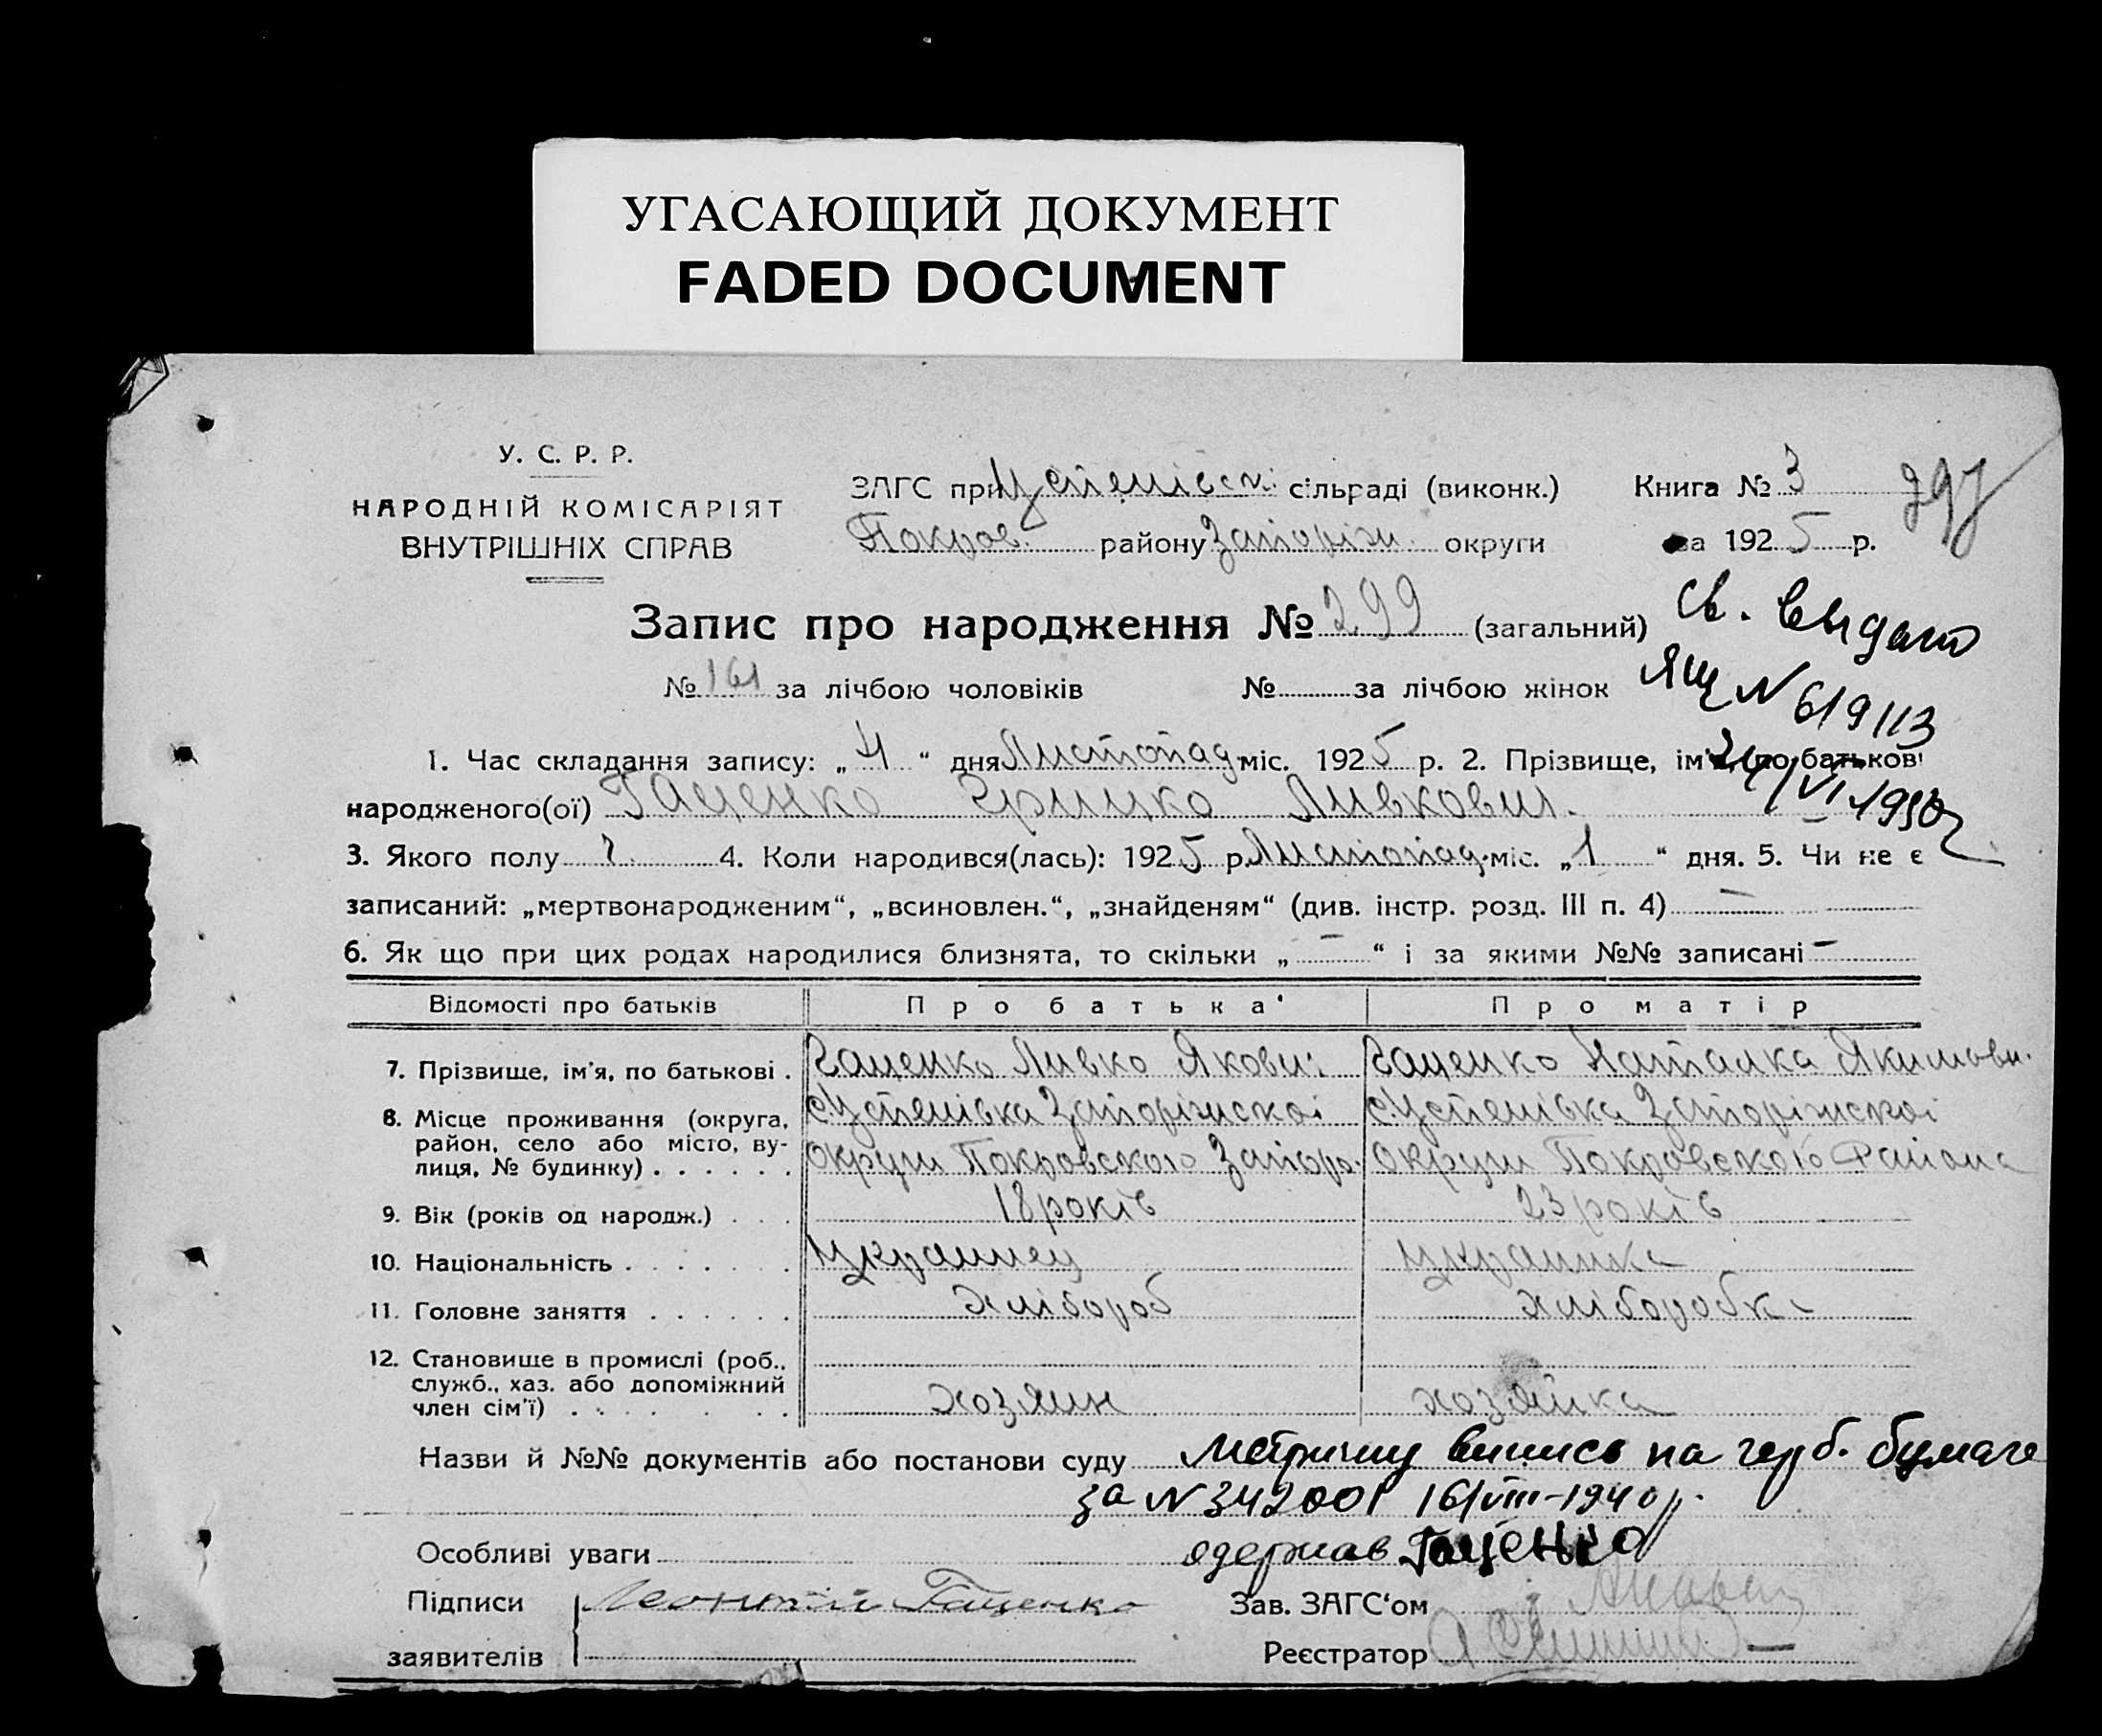 УГАСАЮЩИЙ ДОКУМЕНТ
FADED DOCUMENT
У. С. Р. Р.
НАРОДНІЙ КОМІСАРІЯТ
ВНУТРІШНІХ СПРАВ
ЗАГС при Успенівск. сільраді (виконк.)
Покров. району Запоріж. округи
Книга № 3
за 1925 р.
297
Запис про народження № 299 (загальний)
№ 161 за лічбою чоловіків № за лічбою жінок
Св. выдано
ЯЩ № 619113
24/VI 1950 г.
1. Час складання запису: „4“ дня Листопад міс. 1925 р. 2. Прізвище, ім'я, по батькові
народженого(ої) Гаценко Грицко Ливкович.
3. Якого полу ч. 4. Коли народився(лась): 1925 р. Листопад. міс. „1“ дня. 5. Чи не є
записаний: „мертвонародженим“, „всиновлен.“, „знайденям“ (див. інстр. розд. III п. 4) —
6. Як що при цих родах народилися близнята, то скільки „—“ і за якими №№ записані —
Відомості про батьків Про батька Про матір
7. Прізвище, ім'я, по батькові . Гаценко Ливко Якови: Гаценко Наталка Якимовн.
8. Місце проживання (округа, с. Успенівка Запоріжскої с. Успенівка Запоріжскої
район, село або місто, ву-
лиця, № будинку) . . . . . . Округи Покровского Запоро. Округи Покровского Района
9. Вік (років од народж.) . . . 18 років 23 років
10. Національність . . . . . . . Українец Українка
11. Головне заняття . . . . . . хлібороб хліборобка
12. Становище в промислі (роб.,
служб., хаз. або допоміжний
член сім'ї) . . . . . . хозяин хозяйка
Назви й №№ документів або постанови суду Метричну випись на герб. бумаге
за № 342001 16/VIII-1940 р.
Особливі уваги одержав Гаценко
Підписи Леонтий Гаценко Зав. ЗАГС'ом
заявителів Реєстратор